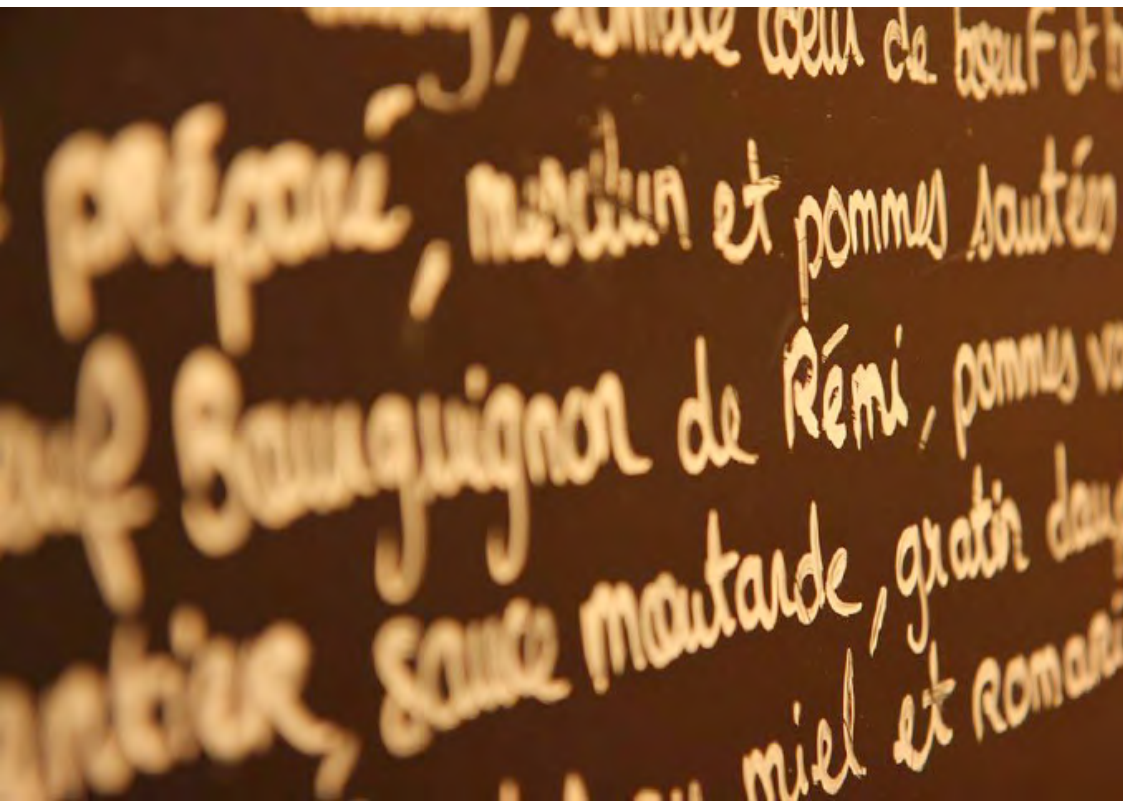 coeur de boeuf et
préparé, mesclun et pommes sautées
Bourguignon de Rémi, pommes
sauce moutarde, gratin
miel et Romari